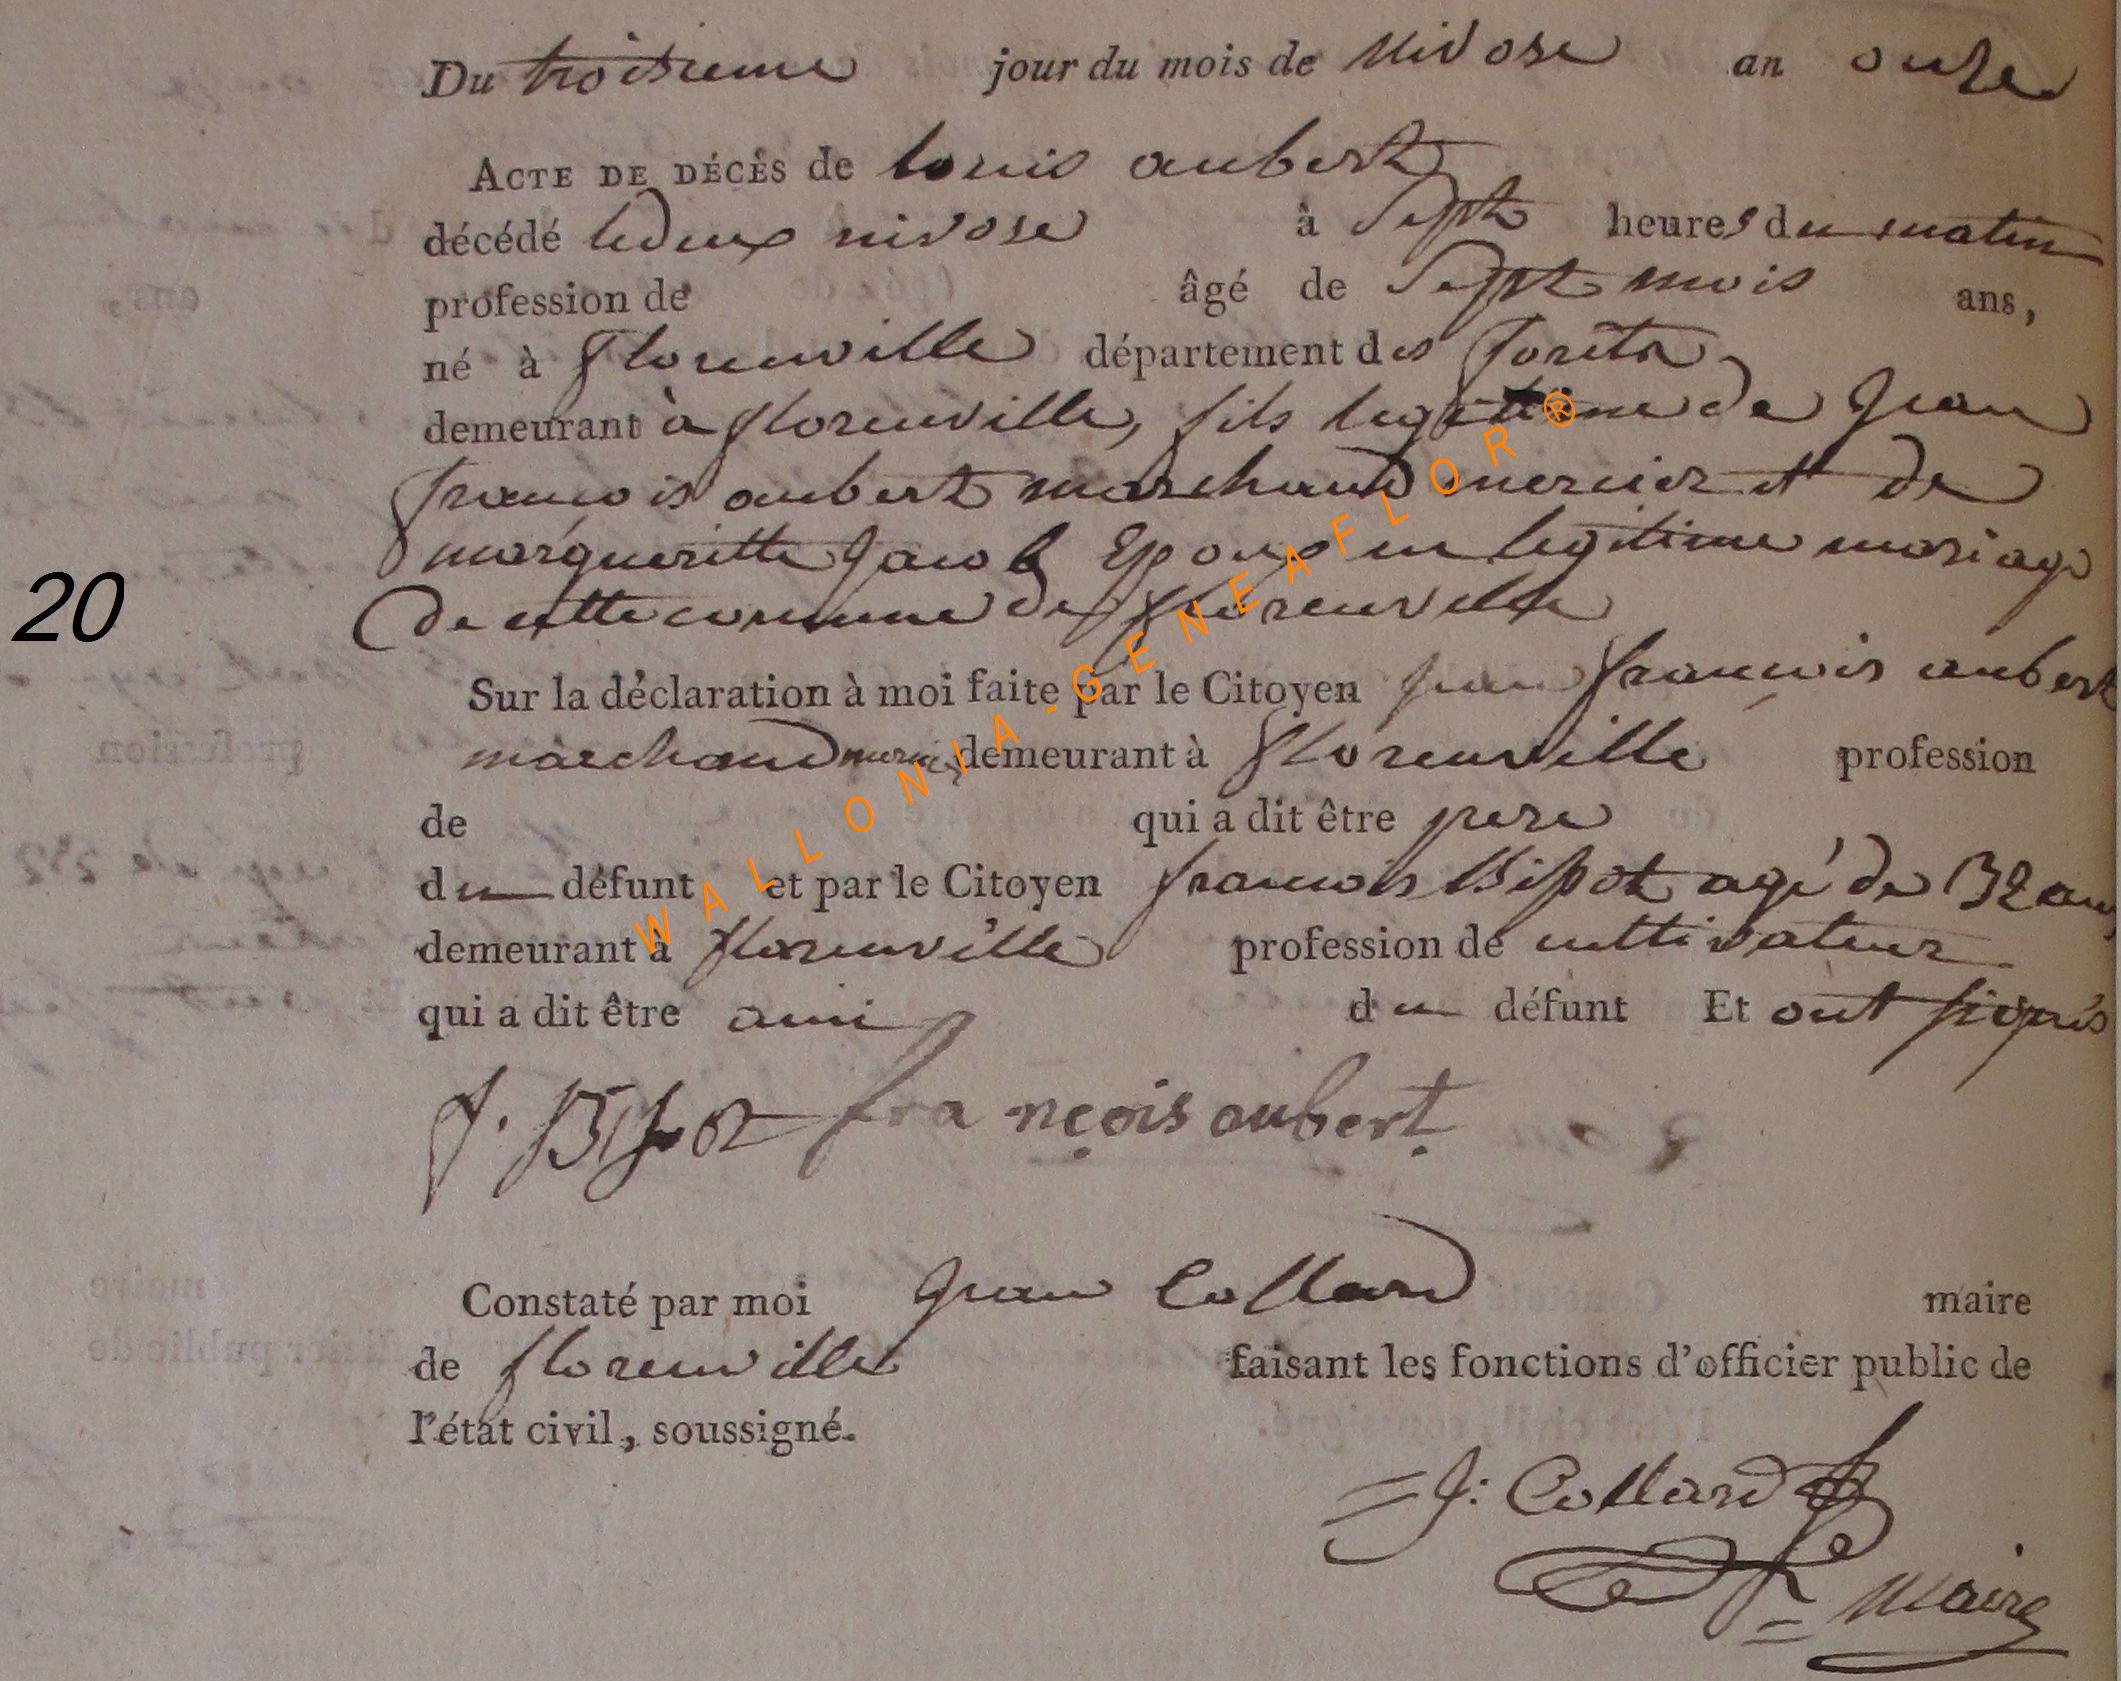 Du troisieme jour du mois de Nivose an onze
ACTE DE DÉCÈS de louis aubert
décédé le deux nivose à Sept heures du matin
profession de âgé de Sept mois ans,
né à florenville département des forets
demeurant à florenville, fils legitime de Jean
francois aubert marchand mercier et de
margueritte Jacob Epoux en legitime mariage
de cette commune de florenville
20
Sur la déclaration à moi faite par le Citoyen jean francois aubert
marchand mercier demeurant à florenville profession
de qui a dit être pere
du défunt et par le Citoyen francois Bispot agé de 32 ans
demeurant à florenville profession de cultivateur
qui a dit être ami du défunt Et ont signés
f. Bispot françois aubert
Constaté par moi Jean Collard maire
de florenville faisant les fonctions d'officier public de
l'état civil, soussigné.
J: Collard
Maire
WALLONIA-GENEAFLOR®